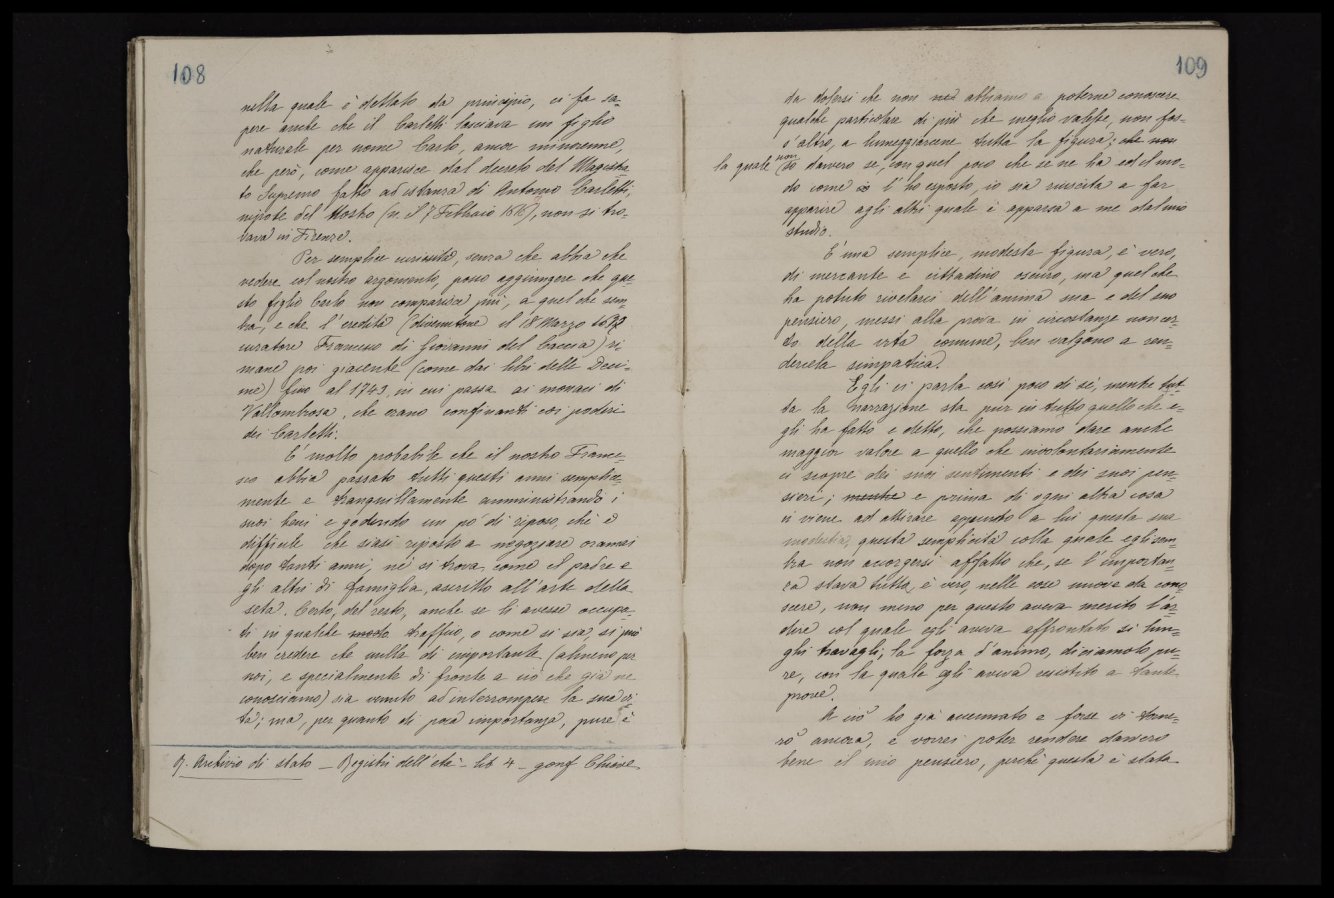 108
nella quale è dettato da principio, ci fa sa=
pere anche che il Carletti lasciava un figlio
naturale per nome Carlo, ancor minorenne,
che però, come apparisce dal decreto del Magistra
to Supremo fatto ad istanza di Antonio Carletti,
nipote del Nostro (n. il 7 Febbraio 1616), non si tro-
vava in Firenze.
Per semplice curiosità, senza che abbia che
vedere col nostro argomento, posso aggiungere che que=
sto figlio Carlo non comparisce più, a quel che sem
bra, e che l'eredità (divenutone il 18 Marzo
curatore Francesco di Giovanni del Caccia) ri
mane poi giacente (come dai libri delle Deci=
me) fino al 1743, in cui passa ai monaci di
Vallombrosa, che erano confinanti coi poderi
dei Carletti.
E' molto probabile che il nostro France=
sco abbia passato tutti questi anni semplice=
mente e tranquillamente amministrando i
suoi beni e godendo un po' di riposo, chè è
difficile che siasi riposto a negoziare oramai
dopo tanti anni, nè si trova, come il padre e
gli altri di famiglia, ascritto all'arte della
seta. Certo, del resto, anche se li avesse occupa=
ti in qualche modo traffico, o come si sia, si può
ben credere che nulla di importante (almeno per
noi, e specialmente di fronte a ciò che già ne
conosciamo) sia venuto ad interrompere la sua vi
ta; ma, per quanto di poca importanza, pure è
Archivio di stato - Registri dell'età - lib 4 - gonf Chiave
109
da dolersi che non ne abbiamo a poterne conoscere
qualche particolare di più che meglio valesse, non fos=
s'altro, a lumeggiarcene tutta la figura; che non
la quale non so davvero se, con quel poco che se ne ha ed il mo=
do come l'ho esposto, io sia riuscito a far
apparire agli altri quale è apparsa a me dal mio
studio.
E' una semplice, modesta figura, è vero,
di mercante e cittadino oscuro, ma quel che
ha potuto rivelarci dell'anima sua e del suo
pensiero, messi alla prova in circostanze non cer=
to della vita comune, ben valgono a ren=
dercela simpatica.
Egli ci parla così poco di sè, mentre tut=
ta la narrazione sta pur in tutto quello che e=
gli ha fatto e detto, che possiamo dare anche
maggior valore a quello che involontariamente
ci scopre dei suoi sentimenti e dei suoi pen=
sieri; mentre e prima di ogni altra cosa
ci viene ad attirare appunto a lui questa sua
modestia, questa semplicità colla quale egli sem=
bra non accorgersi affatto che, se l'importan=
za stava tutta, è vero, nelle cose nuove da cono
scere, non meno per questo aveva merito l'ar=
dire col quale egli aveva affrontato sì lun=
ghi travagli; la forza d'animo, diciamolo pu=
re, con la quale egli aveva resistito a tante
prove.
A ciò ho già accennato e forse ci torne=
rò ancora, e vorrei poter rendere davvero
bene il mio pensiero, perchè questa è stata